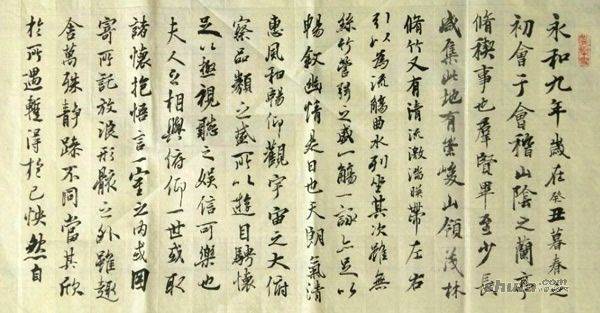 永和九年歲在癸丑暮春之
初會于會稽山陰之蘭亭
脩禊事也羣賢畢至少長
咸集此地有崇峻山領茂林
脩竹又有清流激湍暎帶左右
引以為流觴曲水列坐其次雖無
絲竹管絃之盛一觴一詠亦足以
暢敘幽情是日也天朗氣清
惠風和暢仰觀宇宙之大俯
察品類之盛所以遊目騁懷
足以極視聽之娛信可樂也
夫人之相與俯仰一世或取
諸懷抱悟言一室之內或因
寄所託放浪形骸之外雖趣
舍萬殊靜躁不同當其欣
於所遇暫得於己怏然自